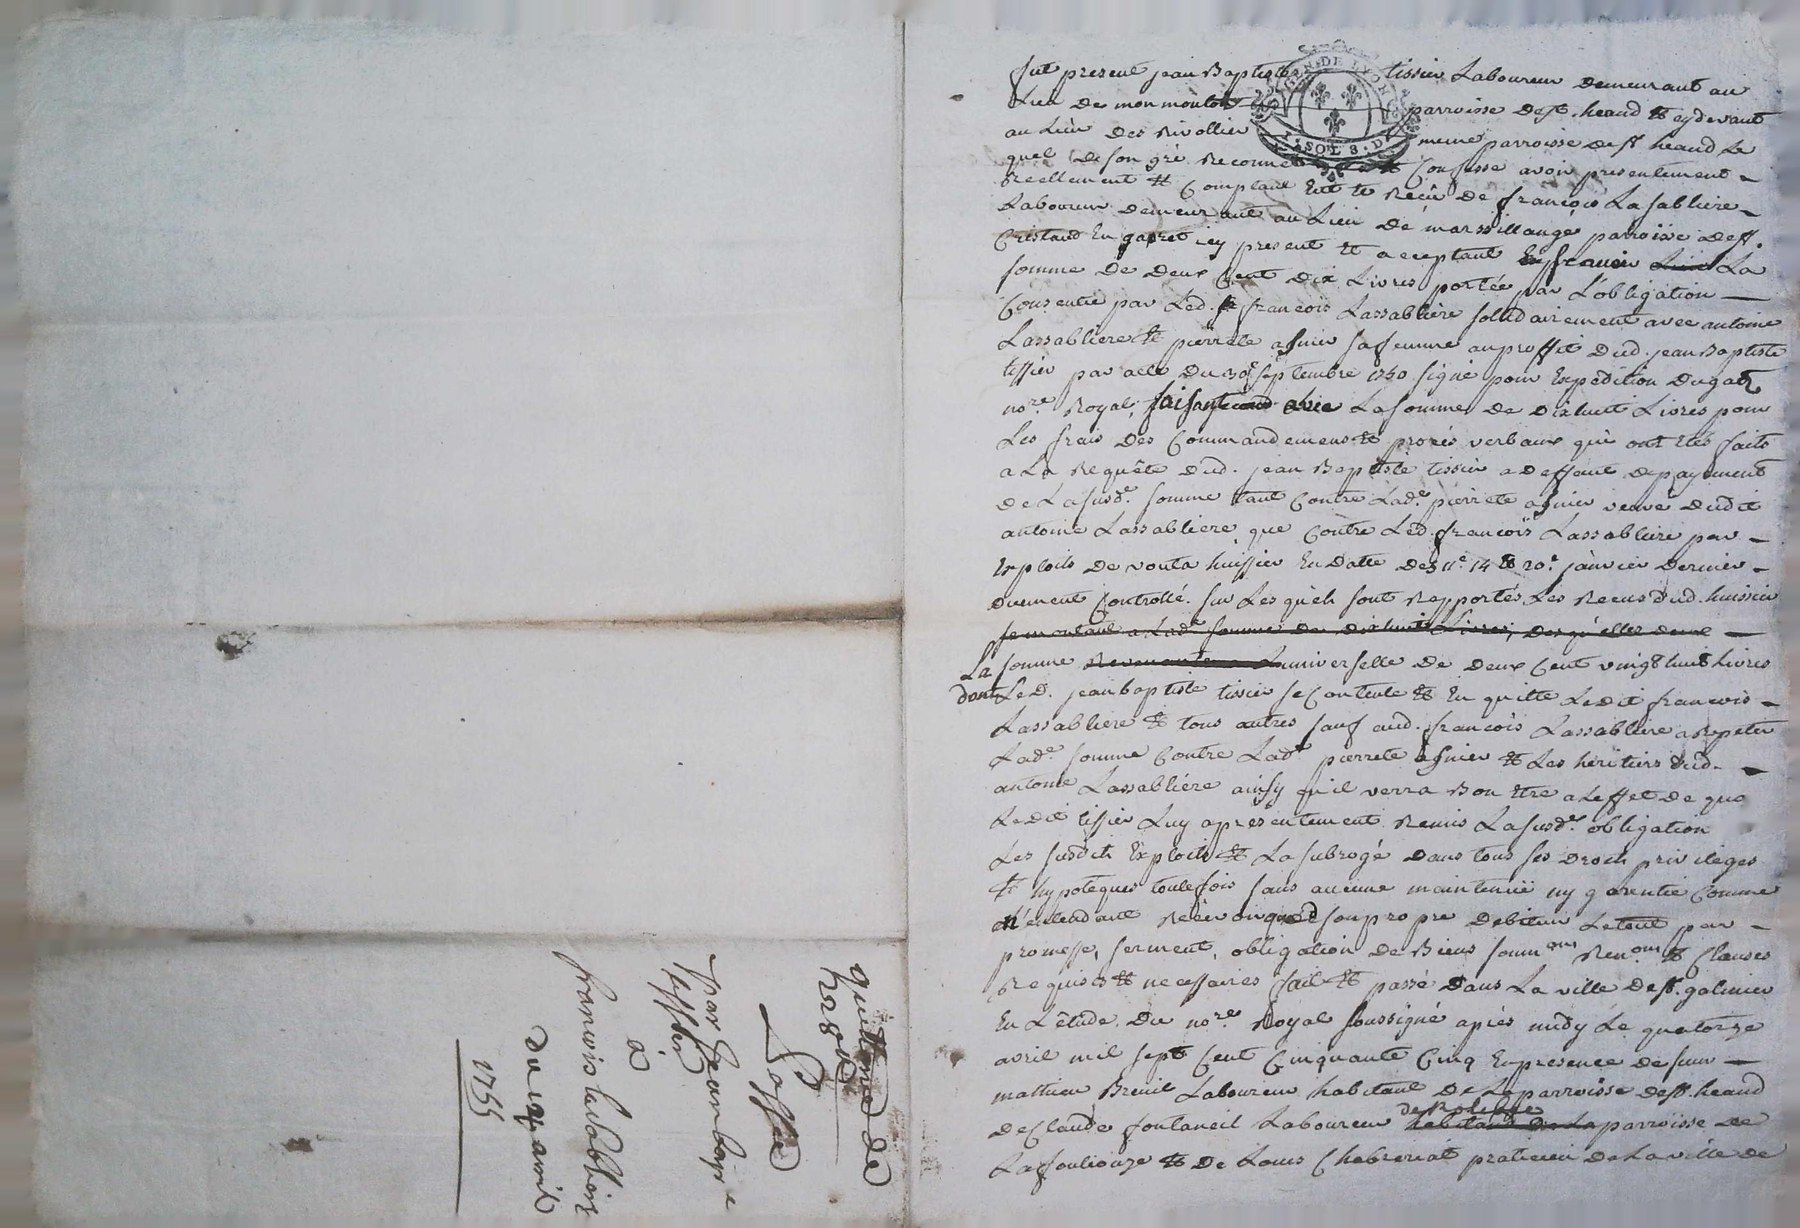 fut present jean Baptiste tissier Laboureur demeurant au
Lieu de monmoulot parroisse de st. heand & cy devant
au Lieu des Rivollier meme parroisse de st heand Le
quel de son gré Reconnet & Confesse avoir presentement
Reellement & Comptant Eut & Reçû de françois Lasabliere
Laboureur demeurant au Lieu de marssillange parroisse de st.
Cristaud En gapret icy present & acceptant La
somme de deux Cent dix Livres portée par L'obligation
Consentie par Led. françois Lassabliere solidairement avec antoine
Lassabliere & pierrete asnier sa femme au proffit dud. jean Baptiste
tissier par acte du 30e septembre 1750 signé pour Expedition Dugas
nore. Royal, La somme de dixhuit Livres pour
Les frais des Commandemens & procés verbaux qui ont Etés faits
a La Requête dud. jean Baptiste tissier a deffaut de payement
de La susde. somme tant Contre Lade. pierrete asnier veuve dudit
antoine Lassabliere que Contre Led. françois Lassabliere par
Exploits de vouta huissier En datte des 11e. 14 & 20e. janvier dernier
duement Controllé. sur Lesquels sont Rapportés Les Recus dud. huissier
se montant a Lade somme de dixhuit Livres, desquelles deux
La somme universelle de deux Cent vingt huit Livres
dont Led. jean baptiste tissier se Contente & En quitte Ledit francois
Lassabliere & tous autres sauf aud. françois Lassabliere a Repeter
Lade. somme Contre Lade. pierrete asnier & Les héritiers dud.
antoine Lassabliére ainsy qu'il verra Bon Etre a Leffet de quo
Ledit tissier Luy a presentement Remis La susde. obligation
Les susdits Exploits & La subrogé dans tous ses droits privileges
& hypoteques toutefois sans aucune maintenuë ny garentie Comme
n'entendant Recevoir que d son propre debiteur Le tout par
promesse, serment, obligation de Biens soumons Renons & Clauses
Requises & necessaires fait & passé dans La ville de st. galmier
En L'étude du nore. Royal soussigné apiés midy Le quatorze
avril mil sept Cent Cinquante Cinq En presence de sieur
mathieu Breuil Laboureur habitant de La parroisse de st. heand
de Claude fontaneil Laboureur parroisse de
La fouliouze & de Louis Chabreriat praticien de La ville de
quittance de
228tt
Passée
par Jean bapte
tissier
à
francois lasabliere
du 14 avril
1755